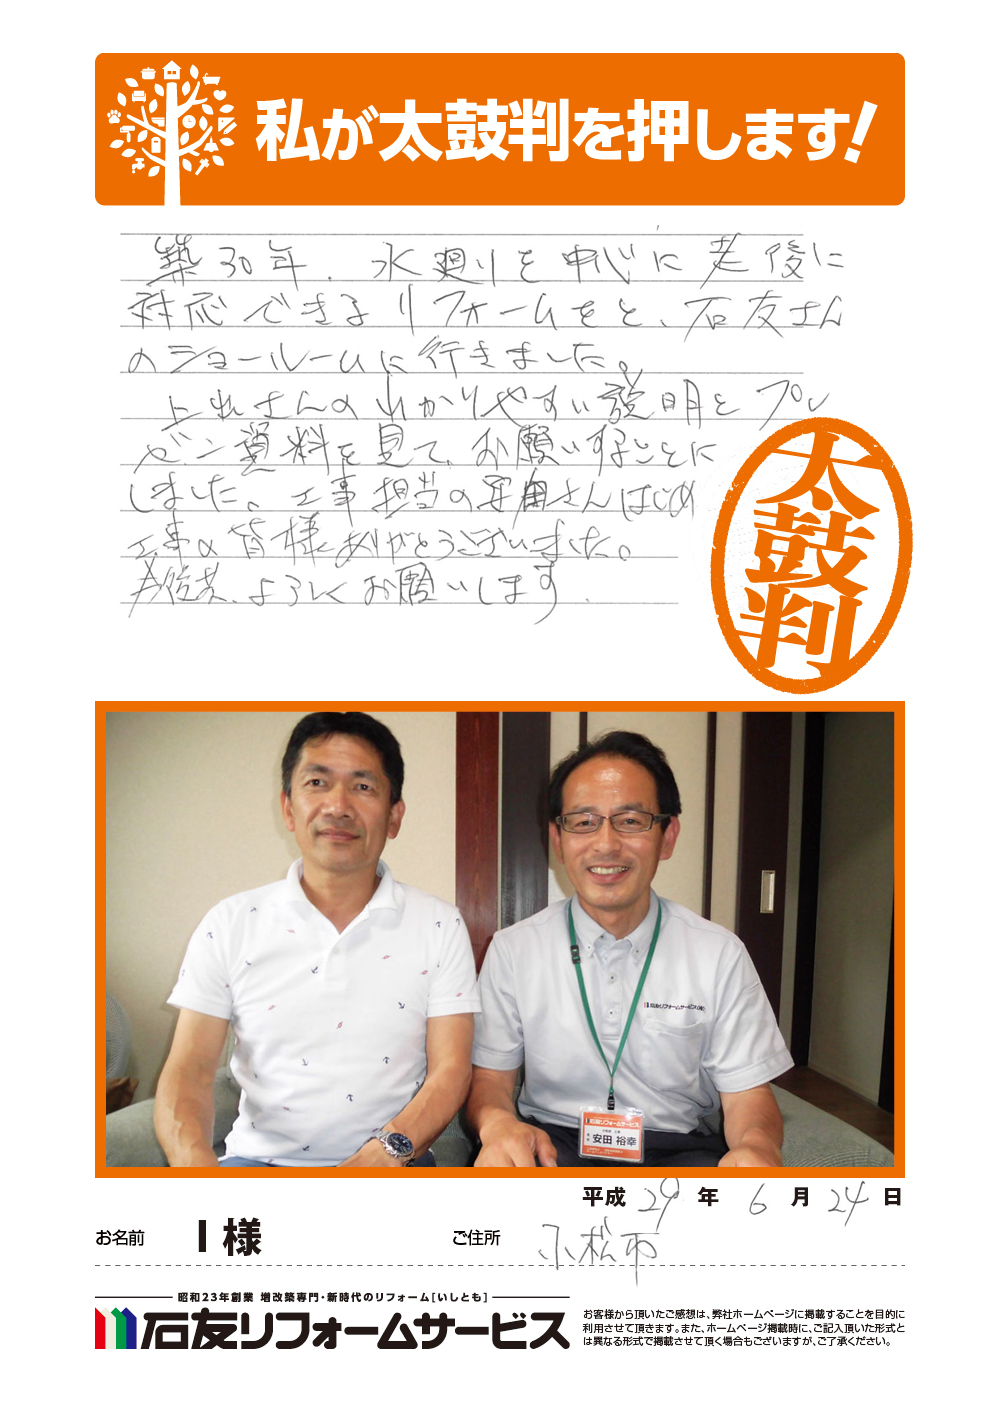 私が太鼓判を押します!
築30年.水廻りを中心に老後に
対応できるリフォームをと、石友さん
のショールームに行きました。
上出さんのわかりやすい説明とプレ
ゼン資料を見て、お願いすることに
しました。工事担当の安田さんはじめ
工事の皆様ありがとうございました。
老後共、よろしくお願いします.
太鼓判
石友リフォームサービス(株)
石友リフォームサービス
安田 裕幸
平成 29 年 6 月 24 日
お名前 I 様 ご住所 小松市
昭和23年創業 増改築専門・新時代のリフォーム[いしとも]
石友リフォームサービス
お客様から頂いたご感想は、弊社ホームページに掲載することを目的に
利用させて頂きます。また、ホームページ掲載時に、ご記入頂いた形式と
は異なる形式で掲載させて頂く場合もございますが、ご了承ください。